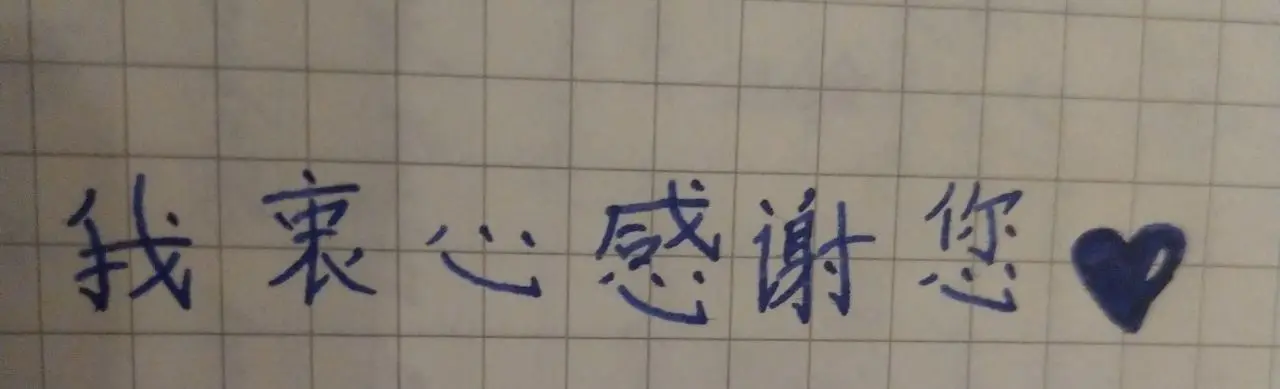 我衷心感谢您♥